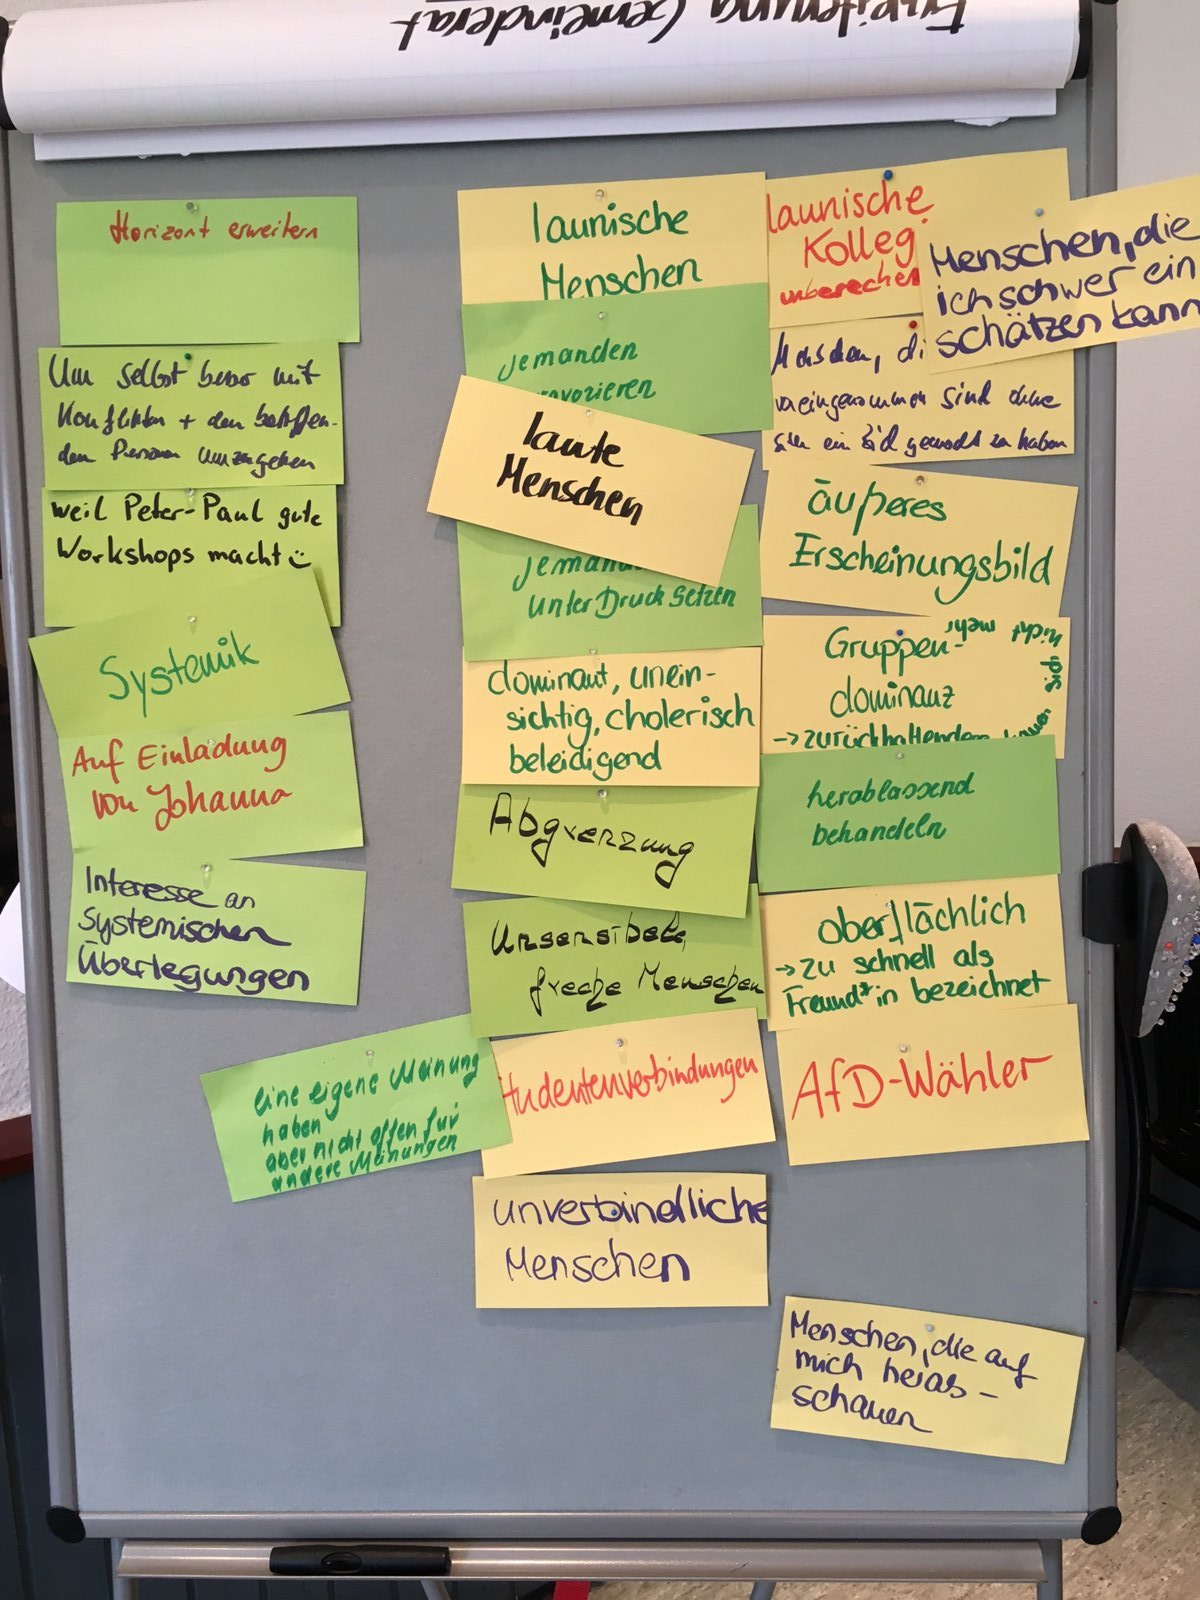 Erweiterung Gemeinderat
Horizont erweitern
Um selbst besser mit
Konflikten + den betreffen-
den Personen umzugehen
weil Peter-Paul gute
Workshops macht
Systemik
Auf Einladung
von Johanna
Interesse an
Systemischen
Überlegungen
eine eigene Meinung
haben
aber nicht offen für
andere Meinungen
launische
Menschen
jemanden
provozieren
laute
Menschen
unter Druck setzen
dominant, unein-
sichtig, cholerisch
beleidigend
Abgrenzung
Unsensibele,
freche Menschen
Studentenverbindungen
unverbindliche
Menschen
launische
Kolleg
unberechen
Menschen, die
ich schwer ein
schätzen kann
Menschen, di
voreingenommen sind ohne
sich ein Bild gemacht zu haben
äußeres
Erscheinungsbild
Gruppen-
dominanz
→ zurückhaltendere
sich nicht mehr
herablassend
behandeln
oberflächlich
→ zu schnell als
Freund*in bezeichnet
AfD-Wähler
Menschen, die auf
mich herab-
schauen